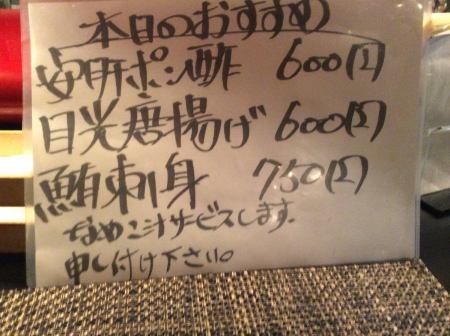 本日のおすすめ
安肝ポン酢 600(税)
目光唐揚げ 600(税)
鮪刺身 750(税)
なめこ汁サービスします。
申し付け下さい。